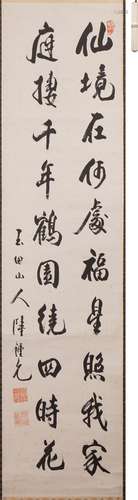 仙境在何處福星照我家
庭棲千年鶴園繞四時花
玉田山人陸